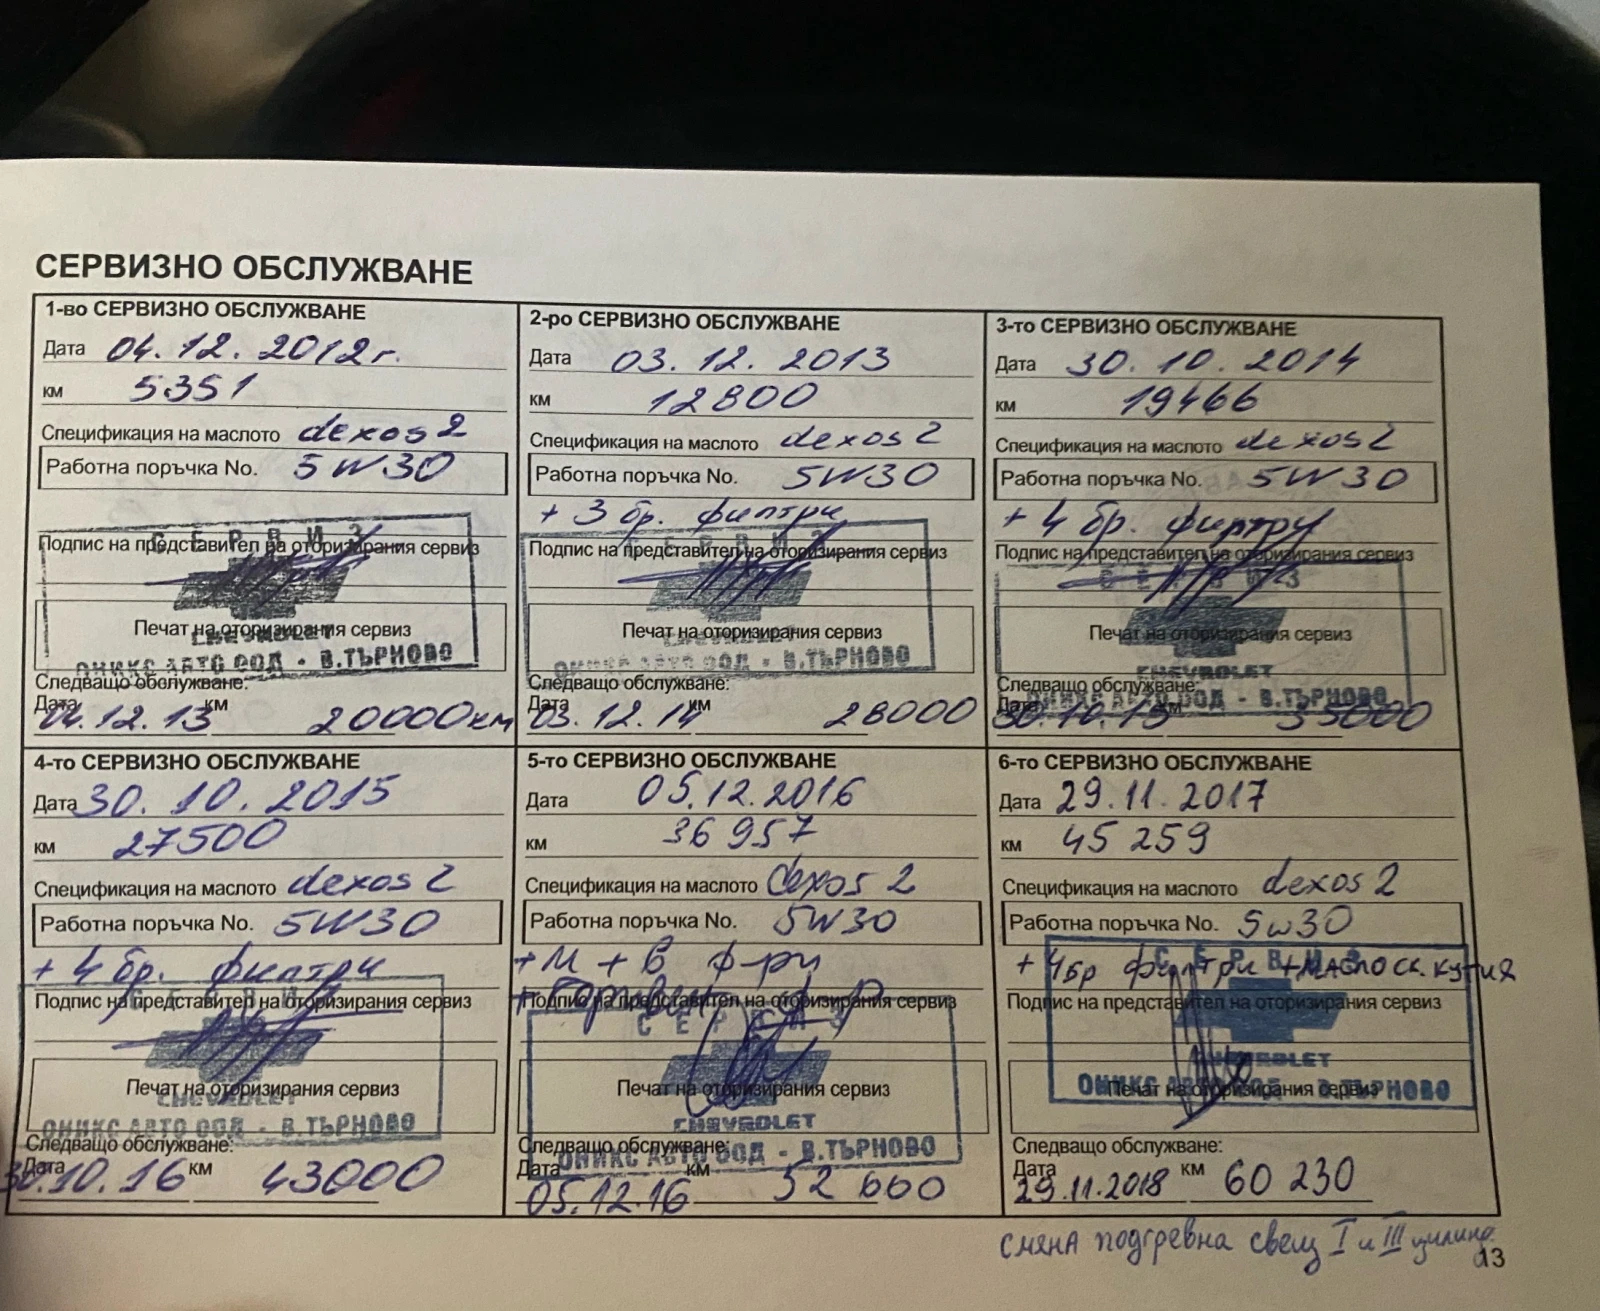 СЕРВИЗНО ОБСЛУЖВАНЕ
1-во СЕРВИЗНО ОБСЛУЖВАНЕ
Дата 04.12.2012г.
км 5351
Спецификация на маслото dexos 2
Работна поръчка No. 5W30
СЕРВИЗ
Подпис на представител на оторизирания сервиз
Печат на оторизирания сервиз
CHEVROLET
ОНИКС АВТО ООД - В.ТЪРНОВО
Следващо обслужване:
Дата 04.12.13 км 20000км
2-ро СЕРВИЗНО ОБСЛУЖВАНЕ
Дата 03.12.2013
км 12800
Спецификация на маслото dexos 2
Работна поръчка No. 5W30
+ 3 бр. филтри
СЕРВИЗ
Подпис на представител на оторизирания сервиз
Печат на оторизирания сервиз
CHEVROLET
ОНИКС АВТО ООД - В.ТЪРНОВО
Следващо обслужване:
Дата 03.12.14 км 28000
3-то СЕРВИЗНО ОБСЛУЖВАНЕ
Дата 30.10.2014
км 19466
Спецификация на маслото dexos 2
Работна поръчка No. 5W30
+ 4 бр. филтри
Подпис на представител на оторизирания сервиз
СЕРВИЗ
Печат на оторизирания сервиз
CHEVROLET
Следващо обслужване:
ОНИКС АВТО ООД - В.ТЪРНОВО
Дата 30.10.15 км 35000
4-то СЕРВИЗНО ОБСЛУЖВАНЕ
Дата 30.10.2015
км 27500
Спецификация на маслото dexos 2
Работна поръчка No. 5W30
+ 4 бр. филтри
Подпис на представител на оторизирания сервиз
СЕРВИЗ
Печат на оторизирания сервиз
CHEVROLET
ОНИКС АВТО ООД - В.ТЪРНОВО
Следващо обслужване:
Дата 30.10.16 км 43000
5-то СЕРВИЗНО ОБСЛУЖВАНЕ
Дата 05.12.2016
км 36957
Спецификация на маслото dexos 2
Работна поръчка No. 5W30
+ М + В ф-ри
Подпис на представител на оторизирания сервиз
СЕРВИЗ
Печат на оторизирания сервиз
CHEVROLET
Следващо обслужване:
ОНИКС АВТО ООД - В.ТЪРНОВО
Дата 05.12.16 км
6-то СЕРВИЗНО ОБСЛУЖВАНЕ
Дата 29.11.2017
км 45 259
Спецификация на маслото dexos 2
Работна поръчка No. 5w30
СЕРВИЗ
+ 4бр филтри + МАСЛО СК. КУТИЯ
Подпис на представител на оторизирания сервиз
CHEVROLET
Печат на оторизирания сервиз
ОНИКС АВТО ООД - В.ТЪРНОВО
Следващо обслужване:
Дата 29.11.2018 км 60 230
СМЯНА подгревна свещ I и III
13